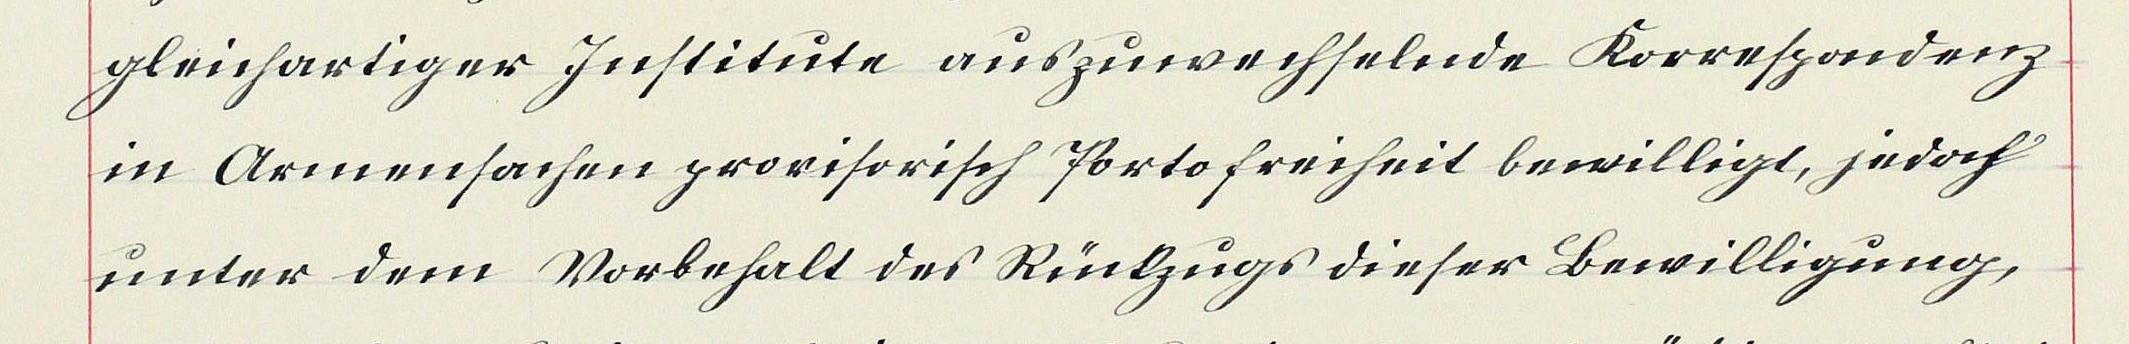 gleichartiger Institute auszuwechselnde Korrespondenz
in Armensachen provisorisch Portofreiheit bewilligt, jedoch
unter dem Vorbehalt des Rückzugs dieser Bewilligung,